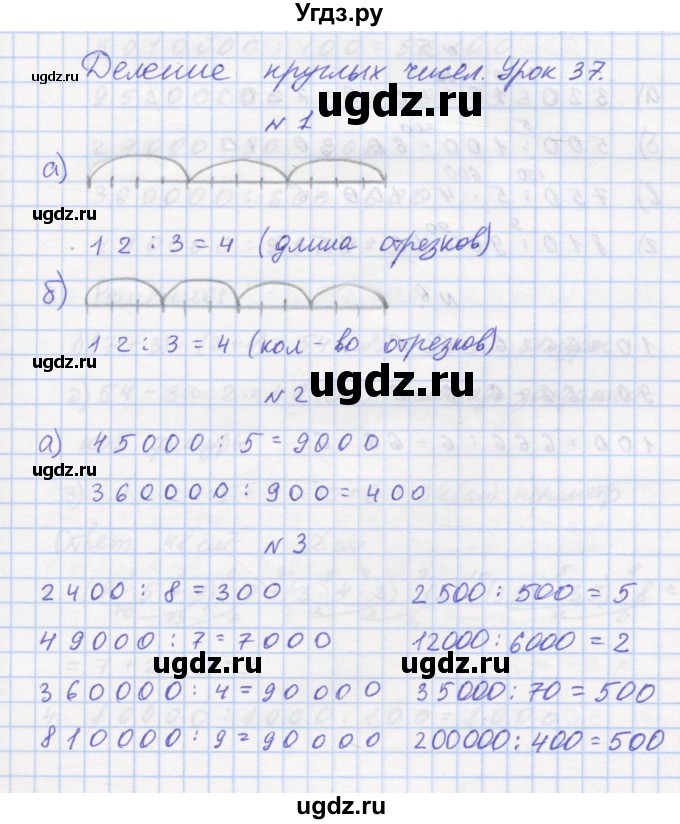 Угдз.ру
Деление круглых чисел. Урок 37.
ugdz.ru
ugdz.ru
N 1
а)
ugdz.ru
12 : 3 = 4 (длина отрезков)
б)
12 : 3 = 4 (кол-во отрезков)
ugdz.ru
ugdz.ru
N 2
а) 45000 : 5 = 9000
ugdz.ru
360000 : 900 = 400
N 3
ugdz.ru
2400 : 8 = 300 2500 : 500 = 5
49000 : 7 = 7000 12000 : 6000 = 2
ugdz.ru
ugdz.ru
360000 : 4 = 90000 35000 : 70 = 500
810000 : 9 = 90000 200000 : 400 = 500
ugdz.ru
ugdz.ru